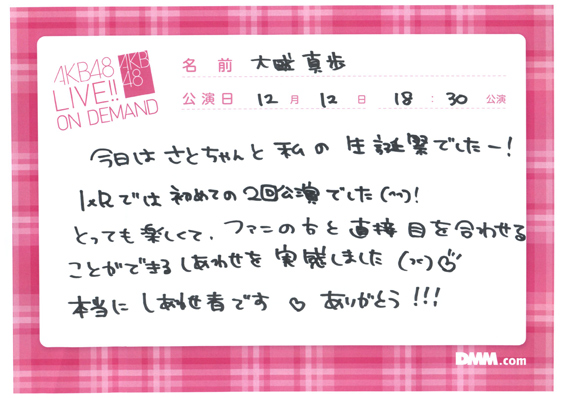 AKB48
LIVE!!
ON DEMAND
AKB
48
名前 大盛真歩
公演日 12月12日 18:30公演
今日はさとちゃんと私の生誕祭でしたー!
1×Rでは初めての2回公演でした(^^)!
とっても楽しくて、ファンの方と直接目を合わせる
ことができるしあわせを実感しました(^^)
本当にしあわせ者です♡ ありがとう!!!
DMM.com